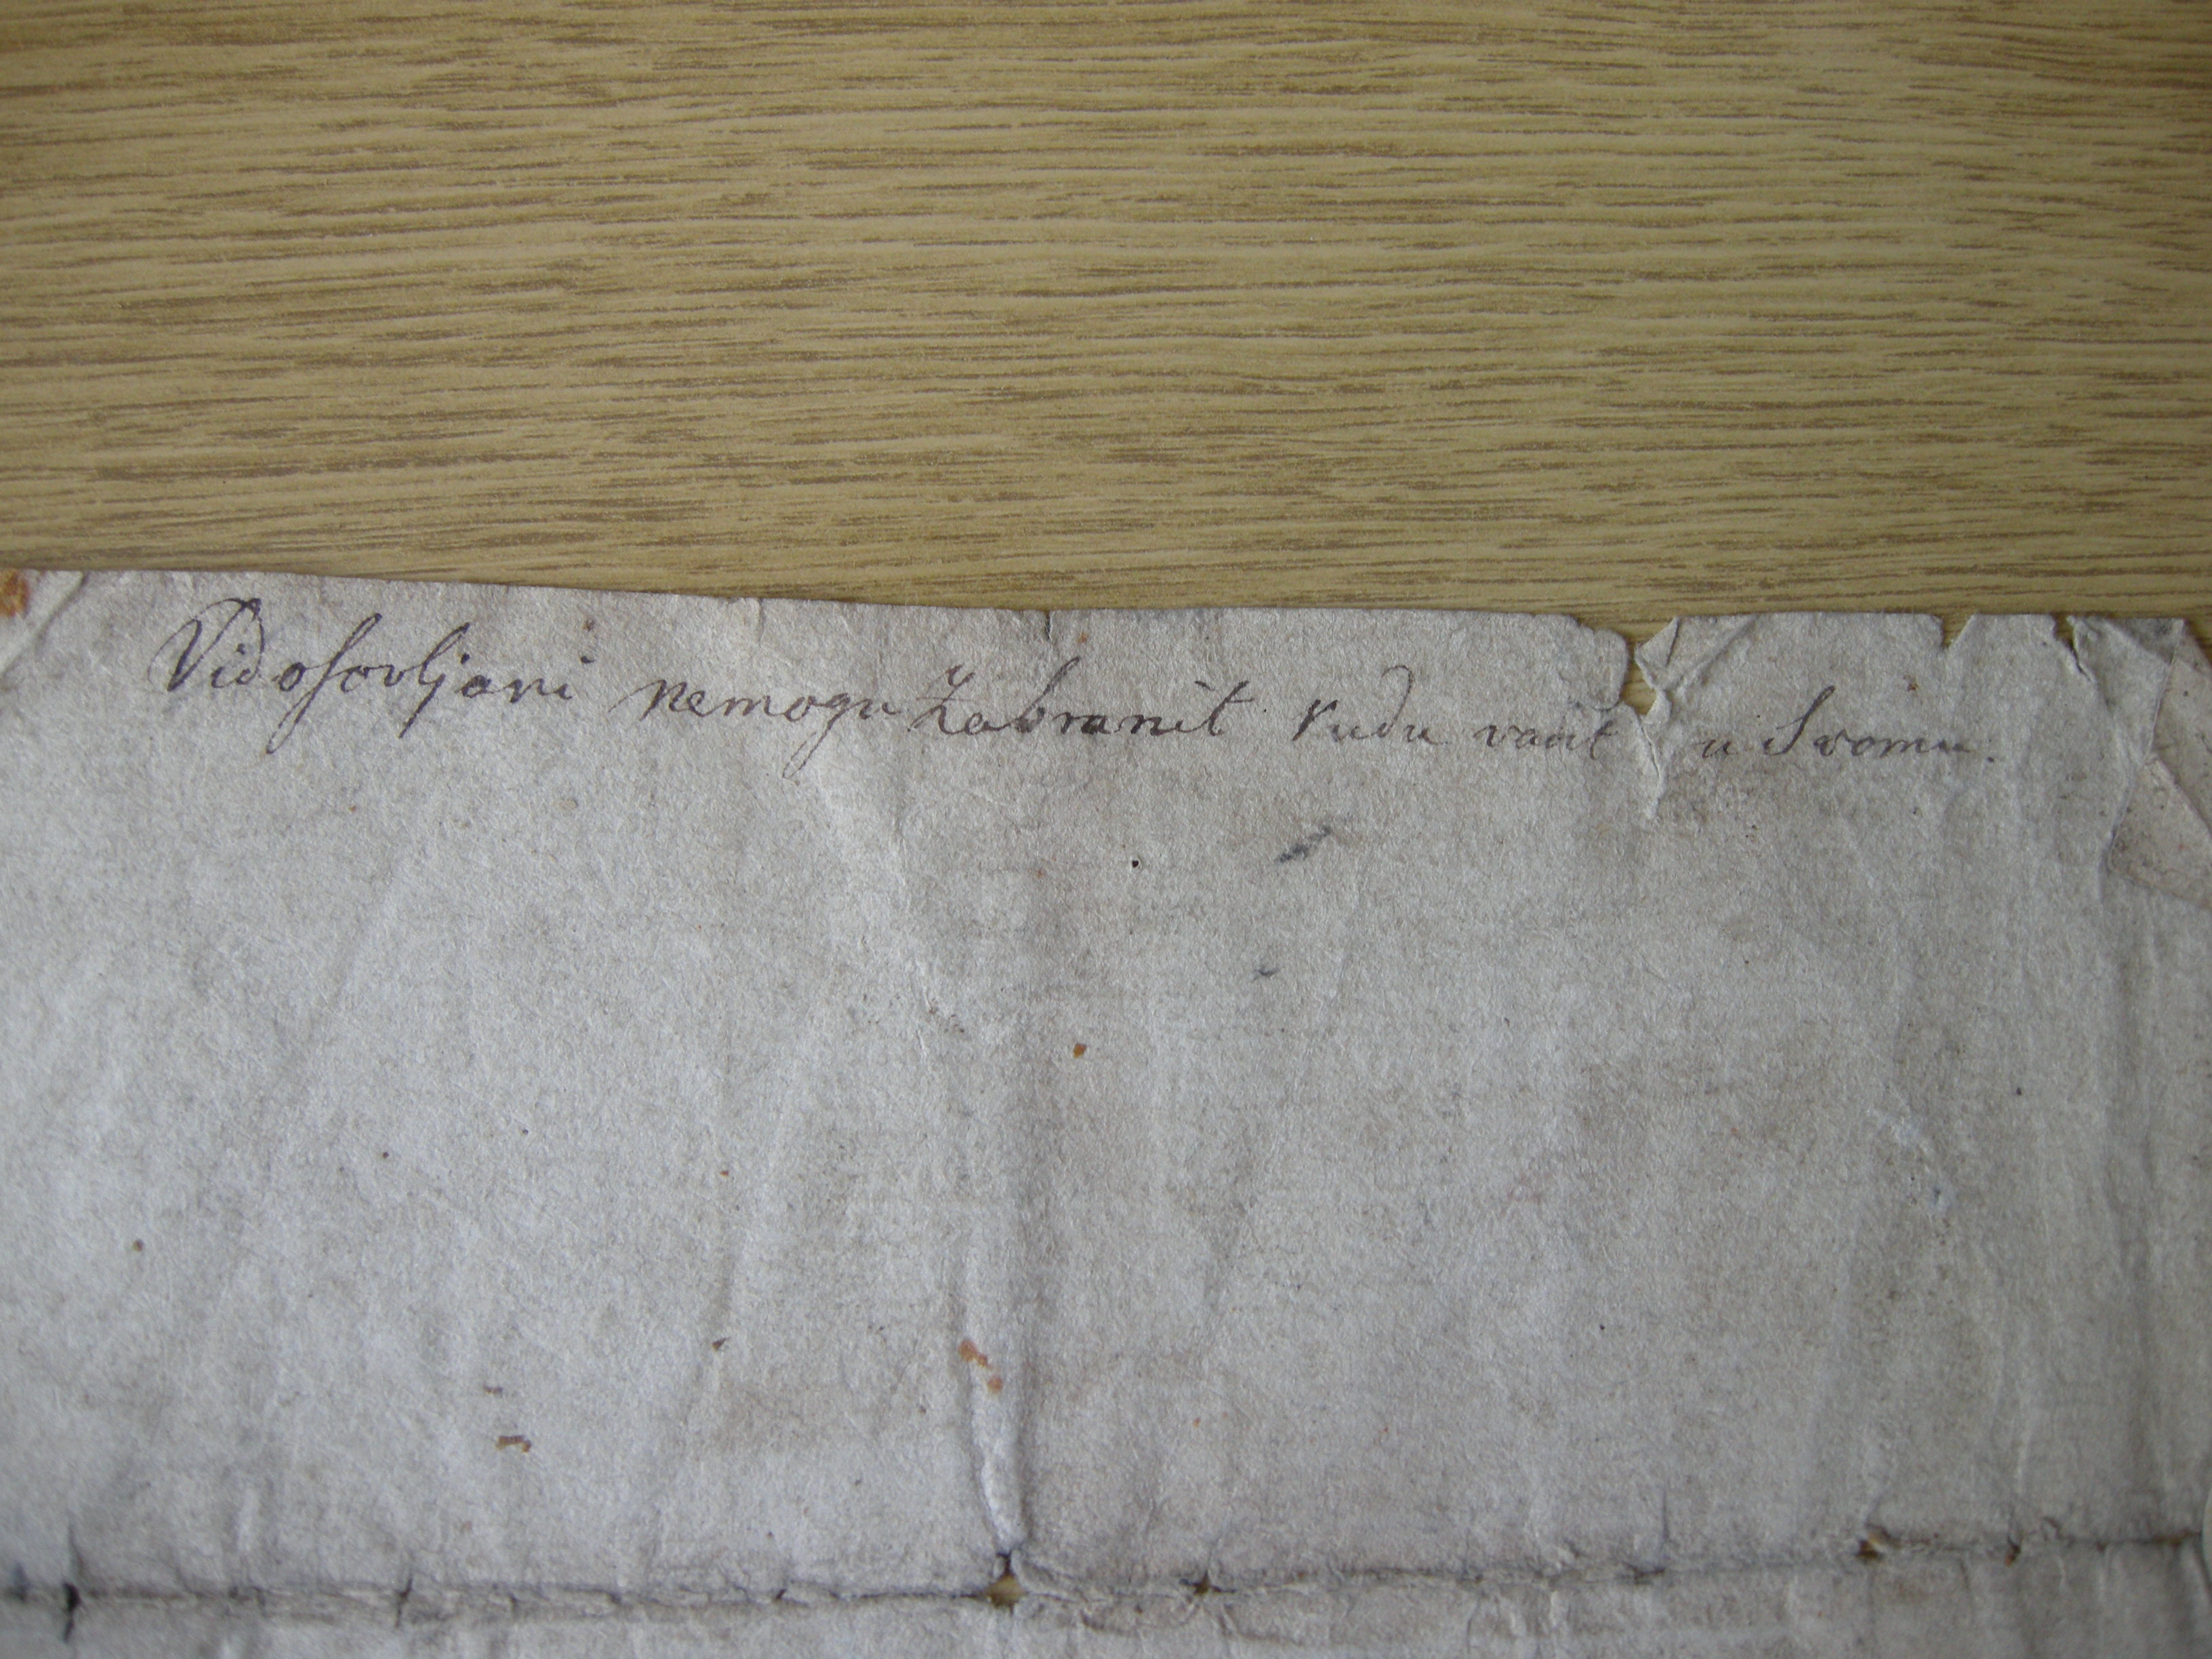 Vidosovljani nemogu zabranit rudu vadit u Svomu.